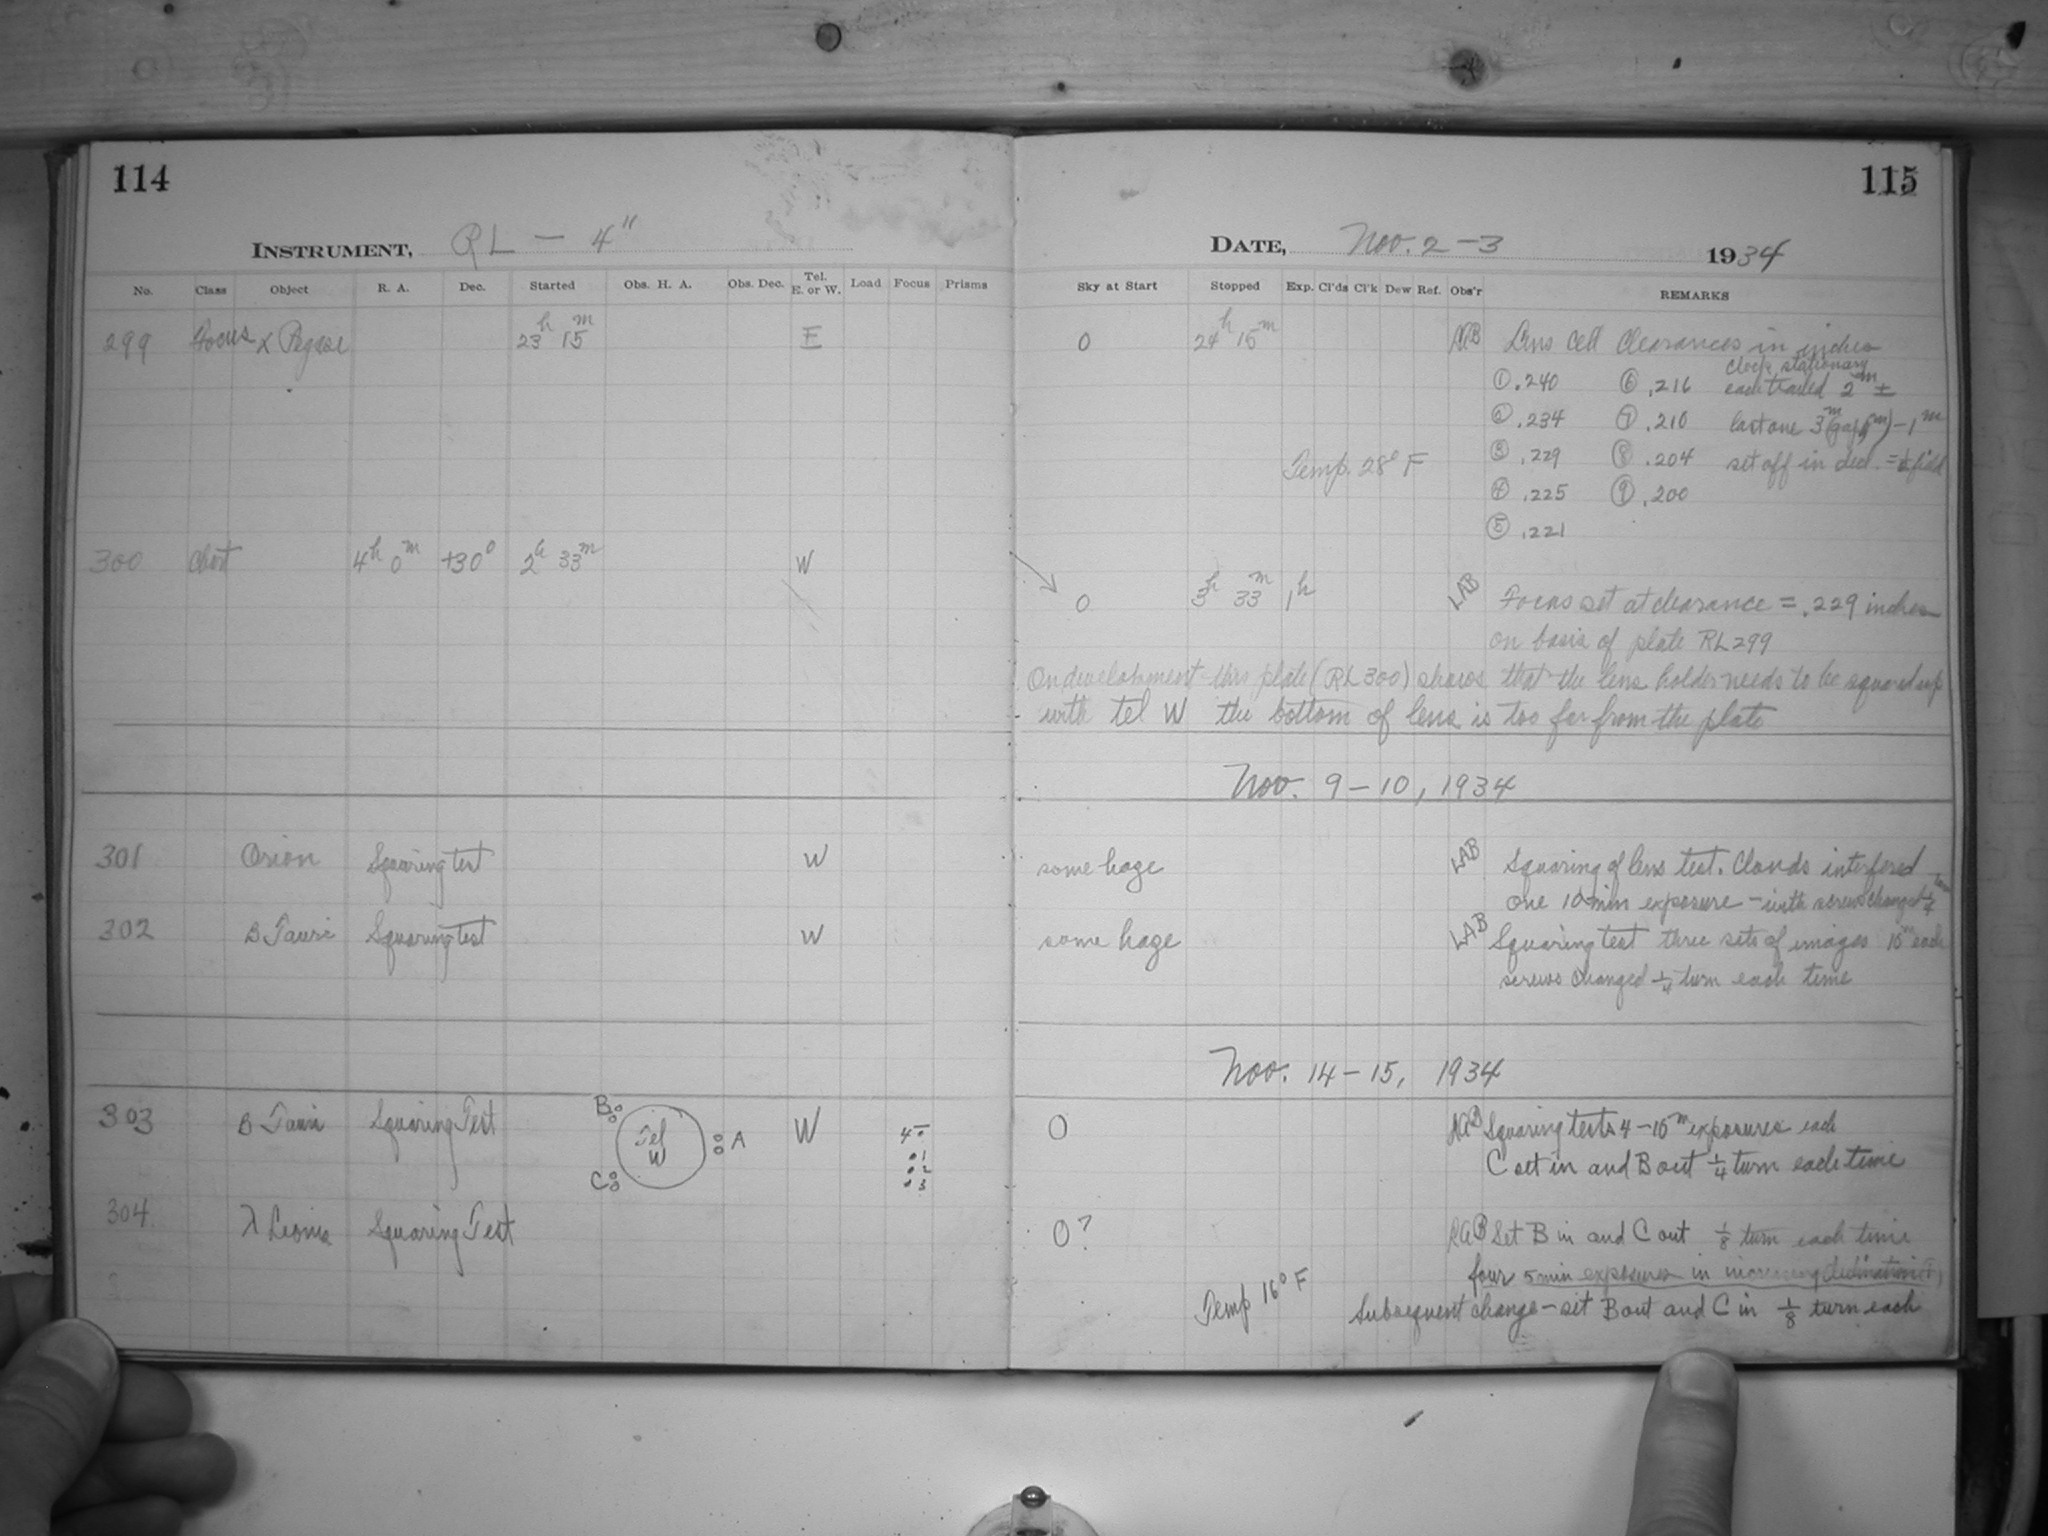 114
115
INSTRUMENT, RL — 4"
DATE, Nov. 2-3 1934
No. Class Object R. A. Dec. Started Obs. H. A. Obs. Dec. Tel. E. or W. Load Focus Prisms
Sky at Start Stopped Exp. Cl'ds Cl'k Dew Ref. Obs'r REMARKS
299 Focus α Pegasi 23h 15m E 0 24h 15m Lens Cell Clearances in inches
clock stationary
① .240 ⑥ .216 each trailed 2m ±
② .234 ⑦ .210 last one 3m – 1m
Temp. 28° F ③ .229 ⑧ .204 set off in dec. = field
④ .225 ⑨ .200
⑤ .221
300 Chart 4h 0m +30° 2h 33m W
0 3h 33m 1h LAB Focus set at clearance = .229 inches
on basis of plate RL299
On development this plate (RL300) shows that the lens holder needs to be squared up
with tel W the bottom of lens is too far from the plate
Nov. 9-10, 1934
301 Orion Squaring test W some haze LAB Squaring of lens test. Clouds interfered
one 10 min exposure - with screws changed 1/4 turn
302 B Tauri Squaring test W some haze LAB Squaring test three sets of images 15m each
screws changed 1/4 turn each time
Nov. 14-15, 1934
303 B Tauri Squaring Test B Tel W A C W 4.0 0 Squaring tests 4-15m exposures each
.1
.2 C set in and B out 1/4 turn each time
.3
304 λ Leonis Squaring Test 0? Set B in and C out 1/8 turn each time
four 5 min exposures in increasing declination
Temp 16° F Subsequent change - set B out and C in 1/8 turn each